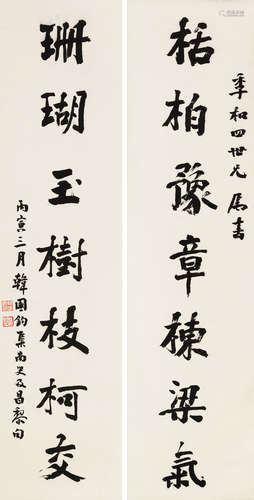 季和四世兄屬書
栝柏豫章棟梁氣
珊瑚玉樹枝柯交
丙寅三月韓國鈞集南史及昌黎句